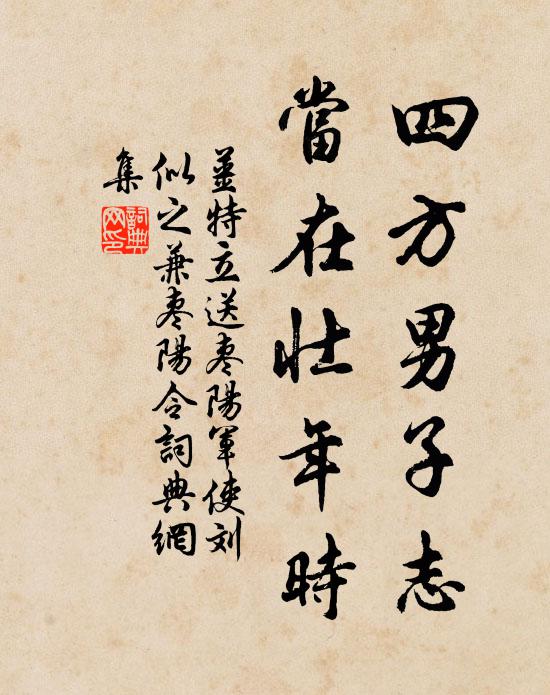 四方男子志
當在壯年時
薑特立送枣陽軍使刘
似之兼枣陽令詞典網
集
詞典
网印